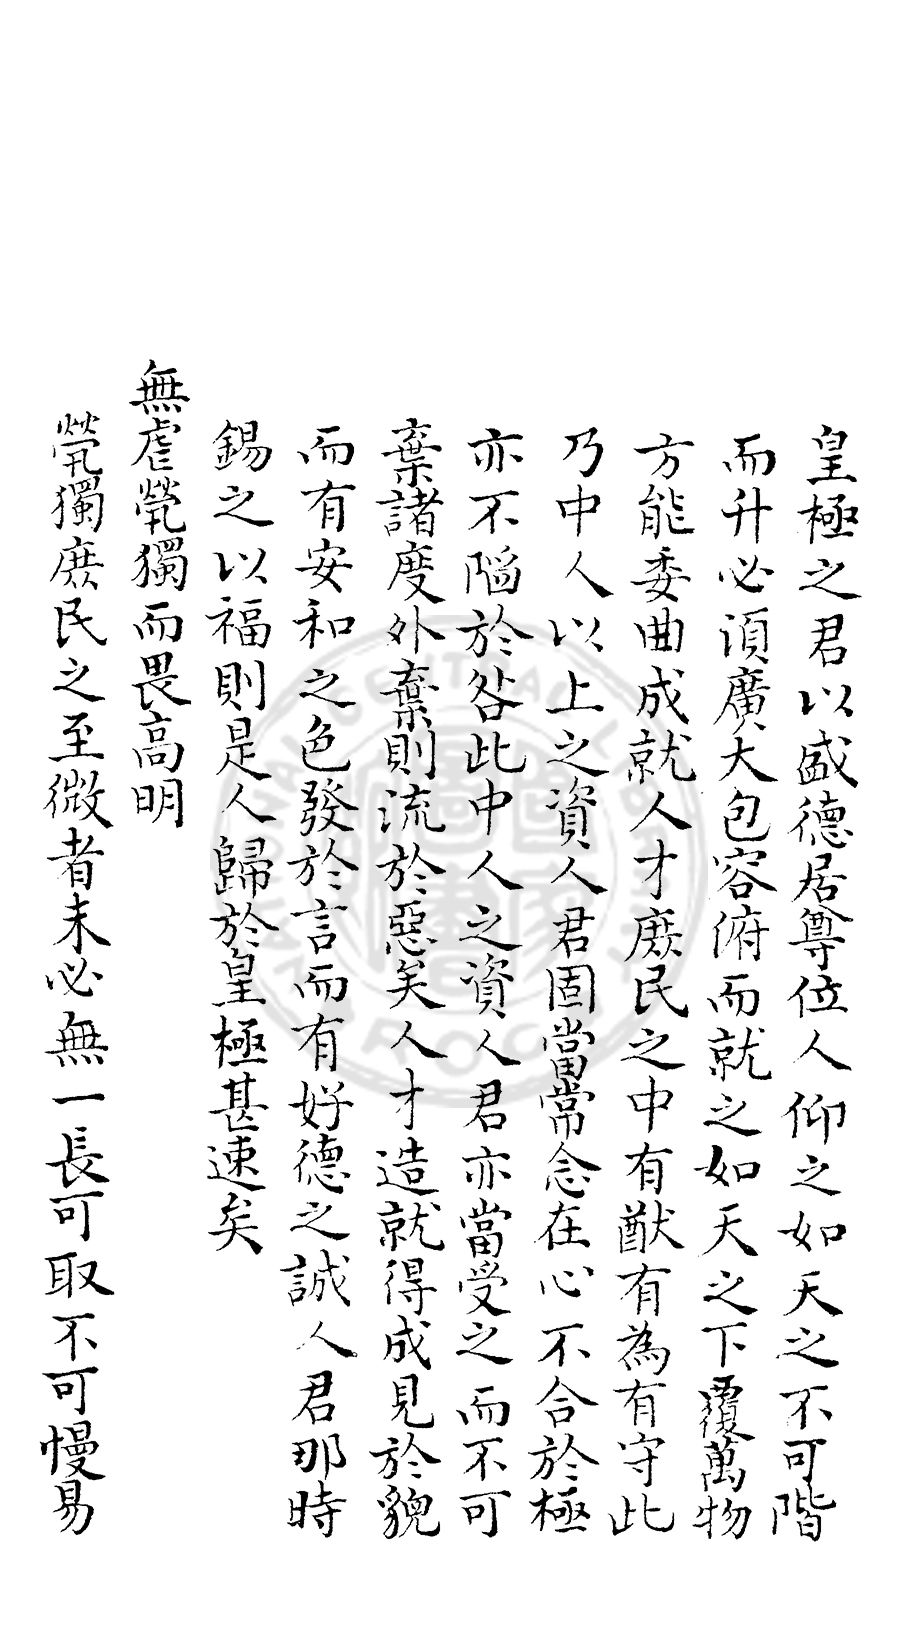 皇極之君以盛德居尊位人仰之如天之不可階
而升必須廣大包容俯而就之如天之下覆萬物
方能委曲成就人才庶民之中有猷有為有守此
乃中人以上之資人君固當常念在心不合於極
亦不陷於咎此中人之資人君亦當受之而不可
棄諸度外棄則流於惡矣人才造就得成見於貌
而有安和之色發於言而有好德之誠人君那時
錫之以福則是人歸於皇極甚速矣
無虐煢獨而畏高明
煢獨庶民之至微者未必無一長可取不可慢易